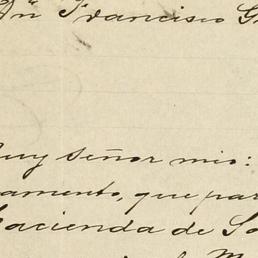 Dn Francisco G
uy señor mio:
amento, que par
acienda de So